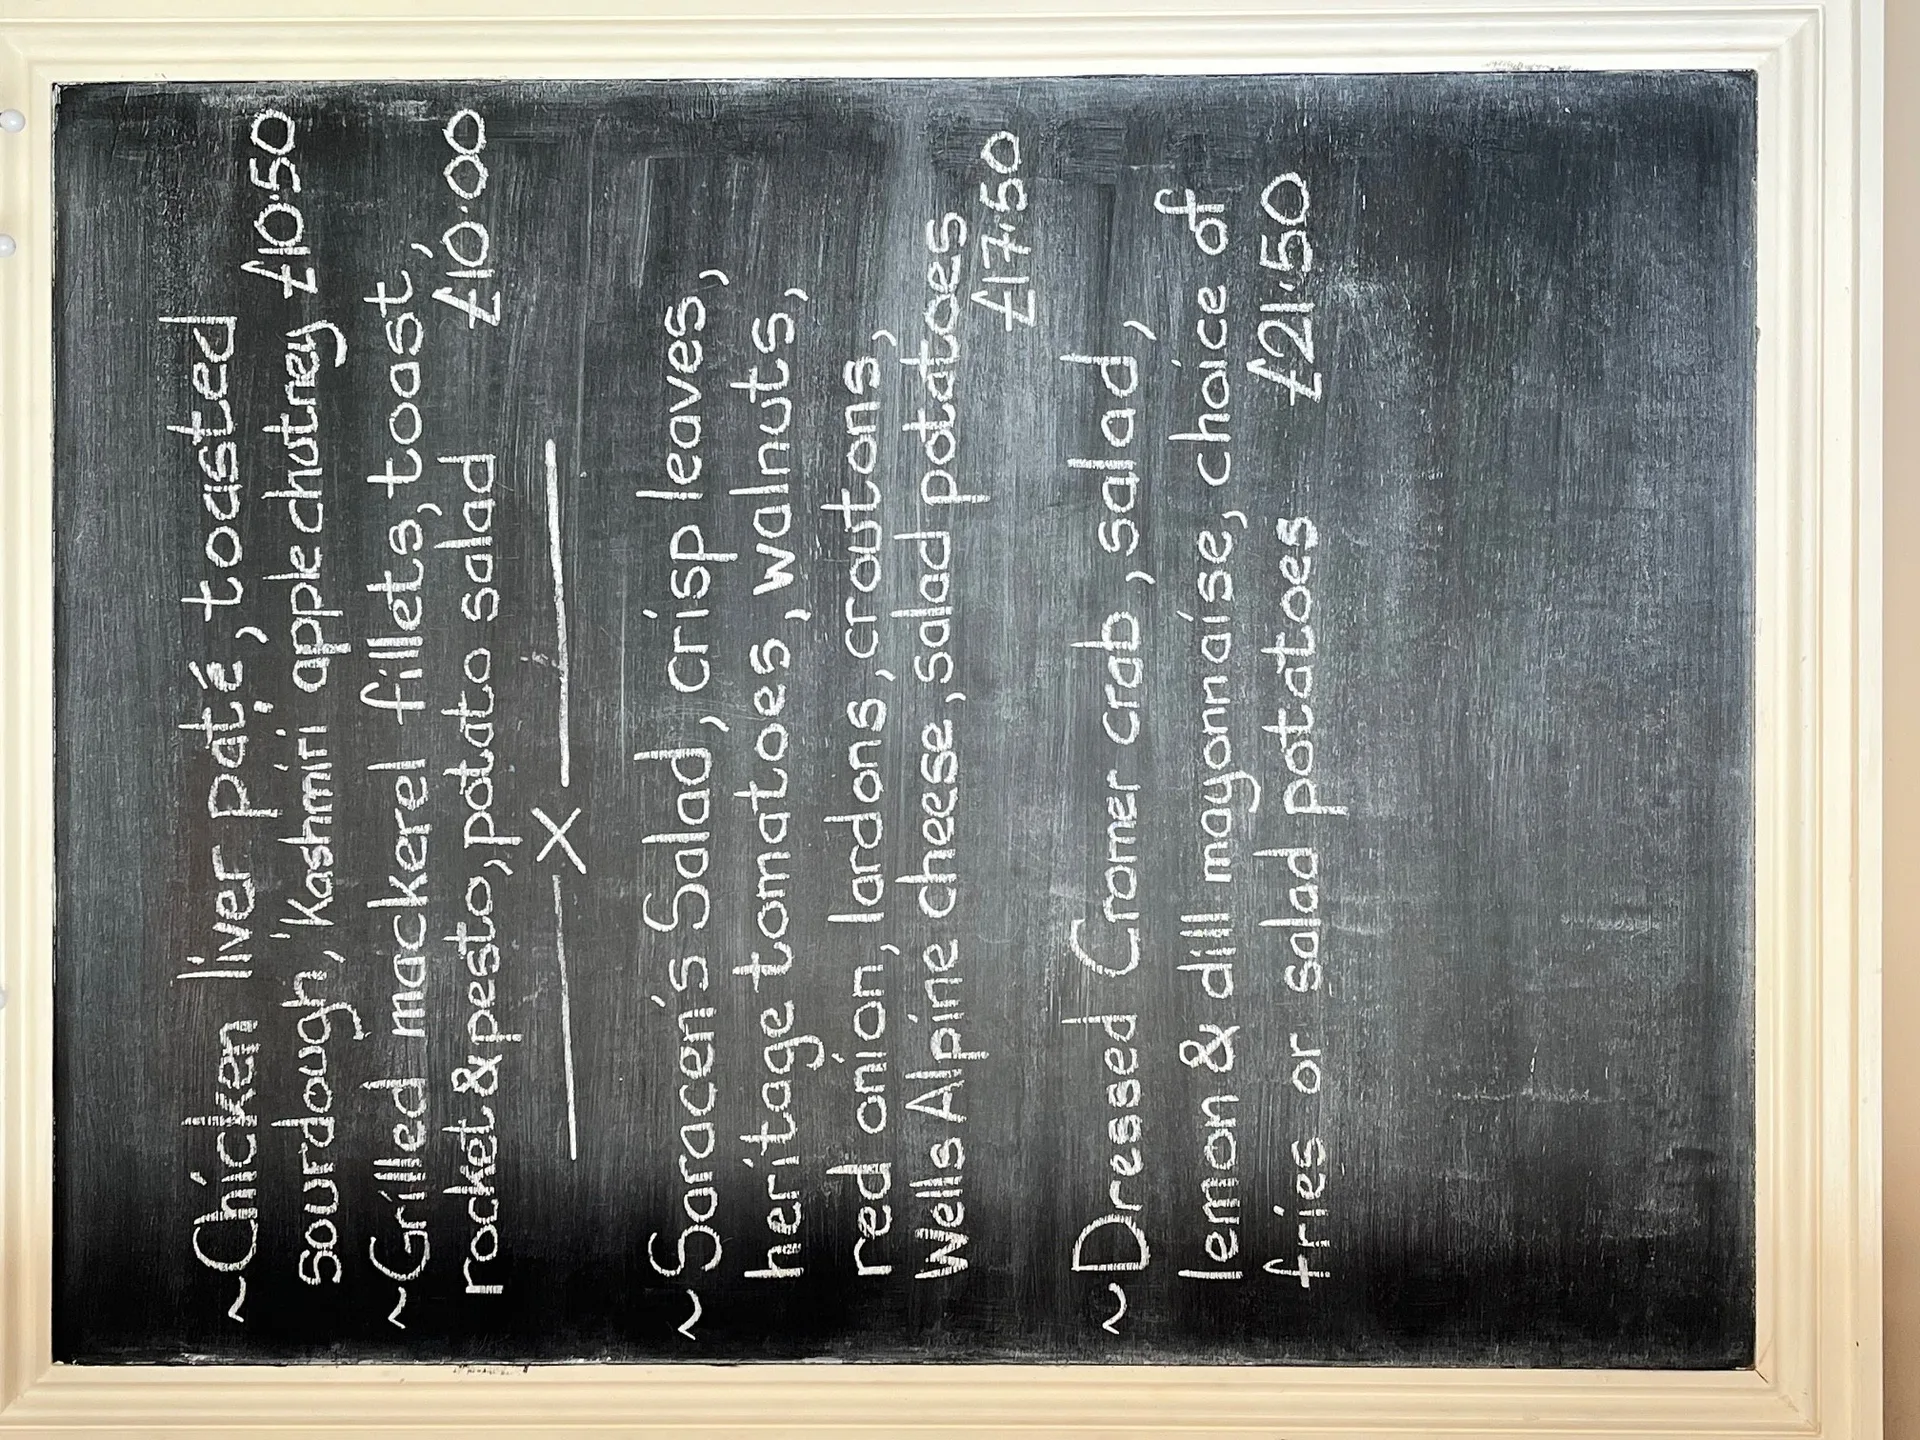 ~Chicken liver paté, toasted
sourdough, 'Kashmiri apple chutney £10.50
~Grilled mackerel fillets, toast,
rocket & pesto, potato salad £10.00
X
~Saracen's Salad, crisp leaves,
heritage tomatoes, walnuts,
red onion, lardons, croutons,
Wells Alpine cheese, salad potatoes
£17.50
~Dressed Cromer crab, salad,
lemon & dill mayonnaise, choice of
fries or salad potatoes £21.50